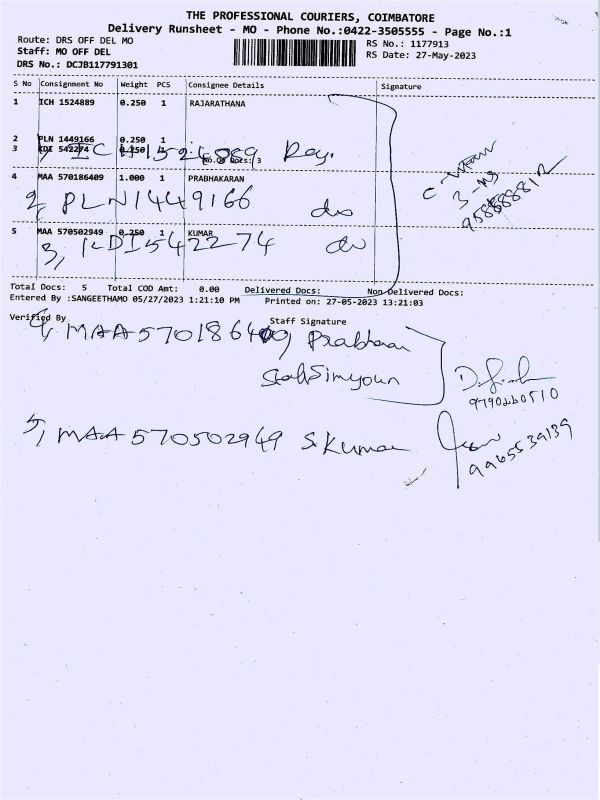 THE PROFESSIONAL COURIERS, COIMBATORE
Delivery Runsheet - MO - Phone No.:0422-3505555 - Page No.:1
Route: DRS OFF DEL MO
RS No.: 1177913
Staff: MO OFF DEL
RS Date: 27-May-2023
DRS No.: DCJB117791301
S No Consignment No Weight PCS Consignee Details Signature
1 ICH 1524889 0.250 1 RAJARATHANA
2 PLN 1449166 0.250 1
3 KDI 542274 0.250 1
No.Of Docs: 3
4 MAA 570186409 1.000 1 PRABHAKARAN
2, PLN1449166 do
5 MAA 570502949 0.250 1 KUMAR
3, KDI542274 do
Total Docs: 5 Total COD Amt: 0.00 Delivered Docs: Non-Delivered Docs:
Entered By :SANGEETHAMO 05/27/2023 1:21:10 PM Printed on: 27-05-2023 13:21:03
Verified By Staff Signature
4, MAA570186409
9790220510
5, MAA 570502949 S.Kumar
9965539139